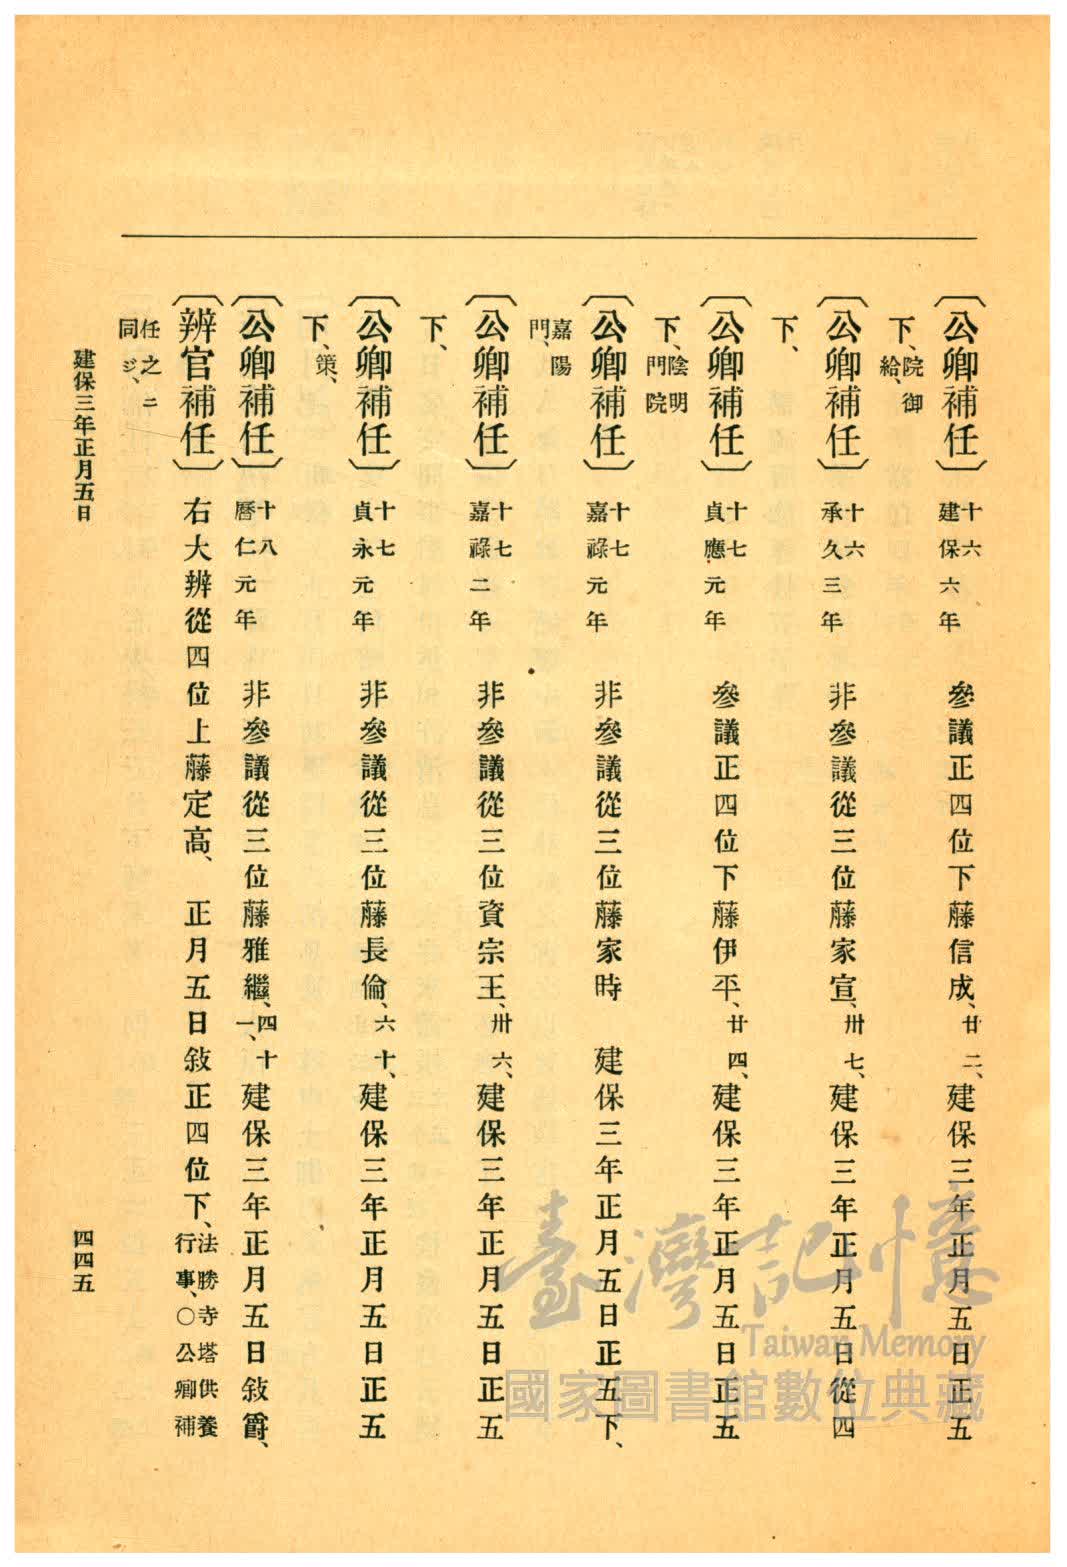 〔公卿補任〕十六建保六年 參議正四位下藤信成、廿二、建保三年正月五日正五
下、院御給、
〔公卿補任〕十六承久三年 非參議從三位藤家宣、卅七、建保三年正月五日從四
下、
〔公卿補任〕十七貞應元年 參議正四位下藤伊平、廿四、建保三年正月五日正五
下、陰明門院
〔公卿補任〕十七嘉祿元年 非參議從三位藤家時 建保三年正月五日正五下、
嘉陽門、
〔公卿補任〕十七嘉祿二年 非參議從三位資宗王、卅六、建保三年正月五日正五
下、
〔公卿補任〕十七貞永元年 非參議從三位藤長倫、六十、建保三年正月五日正五
下、策、
〔公卿補任〕十八曆仁元年 非參議從三位藤雅繼、四十一、建保三年正月五日敍爵、
〔辨官補任〕右大辨從四位上藤定高、 正月五日敍正四位下、法勝寺塔供養行事、〇公卿補
任之ニ同ジ、
建保三年正月五日
四四五
臺灣記憶
Taiwan Memory
國家圖書館數位典藏